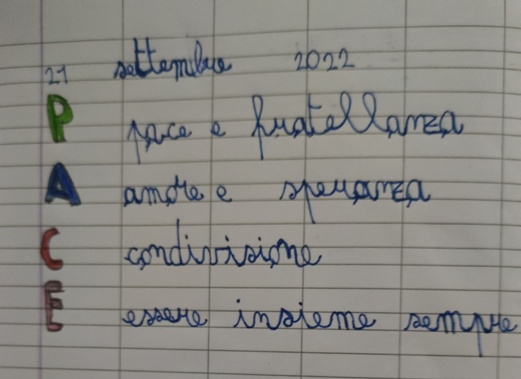 21 settembre 2022
P pace e fratellanza
A amore e speranza
C condivisione
E essere insieme sempre